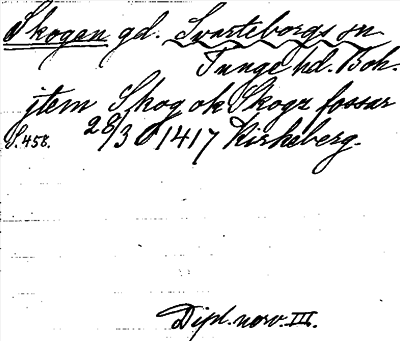 Skogan gd. Svarteborgs sn
Tunge hd. Boh.
jtem Skog ok Skogx fossar
S. 458. 28/3 1417 Kirkeberg.
Dipl. norv. III.